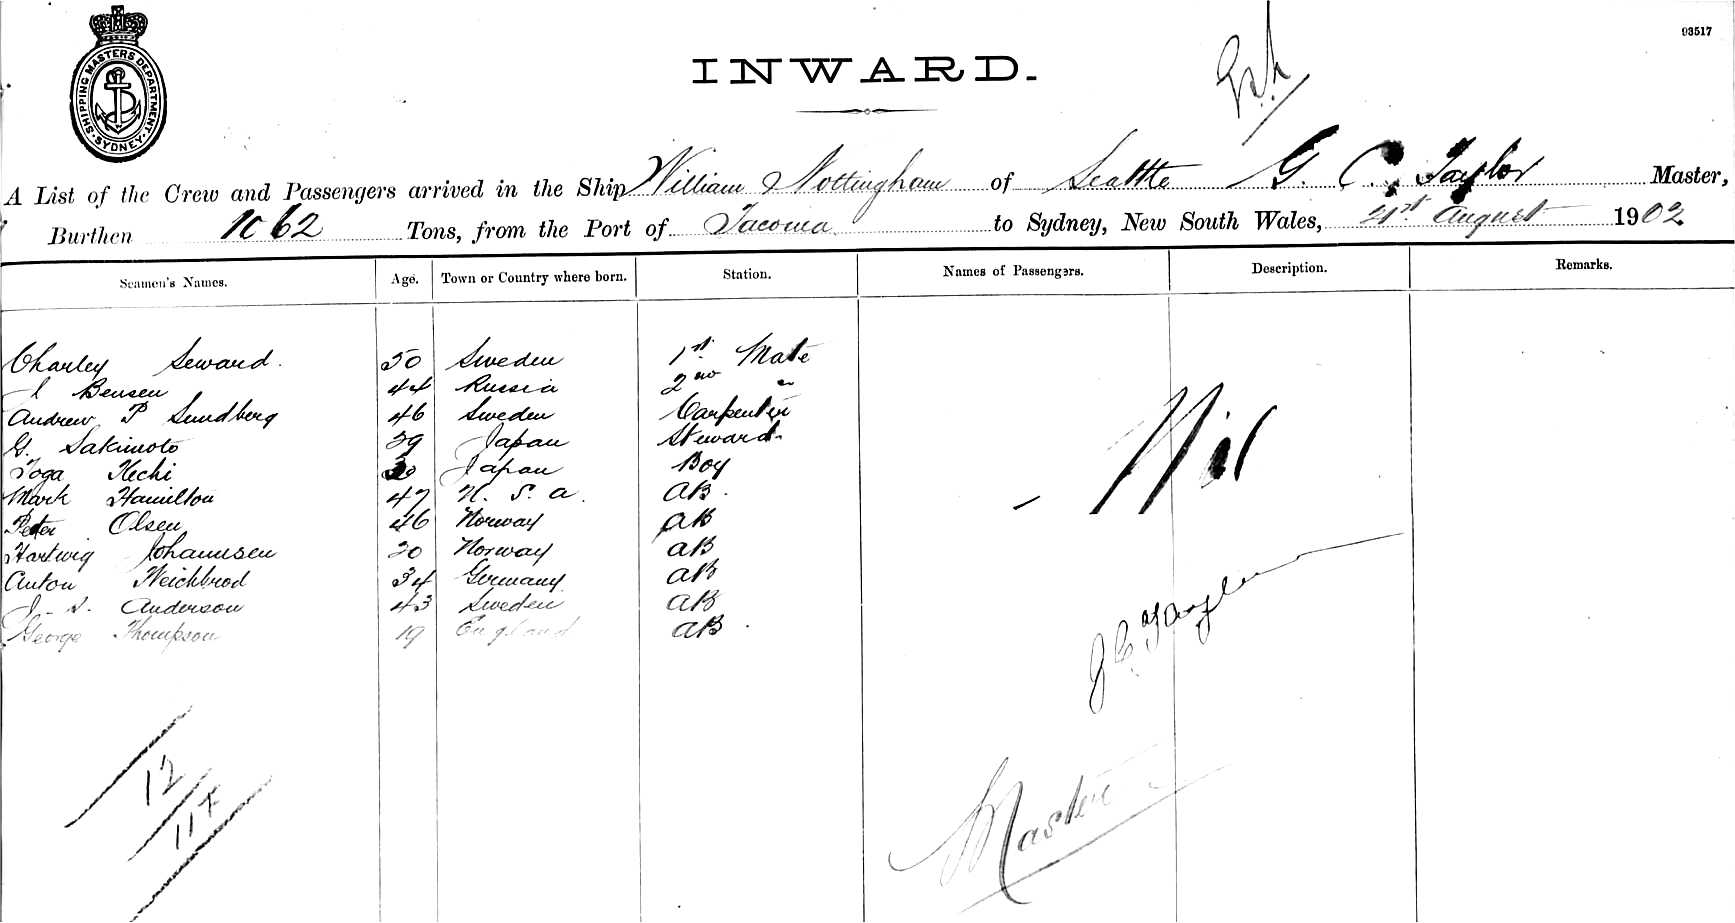 93517
SHIPPING MASTERS DEPARTMENT. SYDNEY
INWARD.
A List of the Crew and Passengers arrived in the Ship William Nottingham of Seattle G. C. Taylor Master,
Burthen 1062 Tons, from the Port of Tacoma to Sydney, New South Wales, 21st August 1902
Seamen's Names. Age. Town or Country where born. Station. Names of Passengers. Description. Remarks.
Charley Seward. 50 Sweden 1st Mate
J Bensen 44 Russia 2nd "
Andrew P Sundberg 46 Sweden Carpenter
G. Sakimoto 29 Japan Steward
Toga Kechi Japan Boy
Mark Hamilton 47 U. S. a. AB.
Peter Olsen 46 Norway AB
Hartwig Johannsen 20 Norway AB
Anton Weichbrod 34 Germany AB
J. S. Anderson 43 Sweden AB
George Thompson 19 England AB
- Nil
G C Taylor
Master
12
11 +